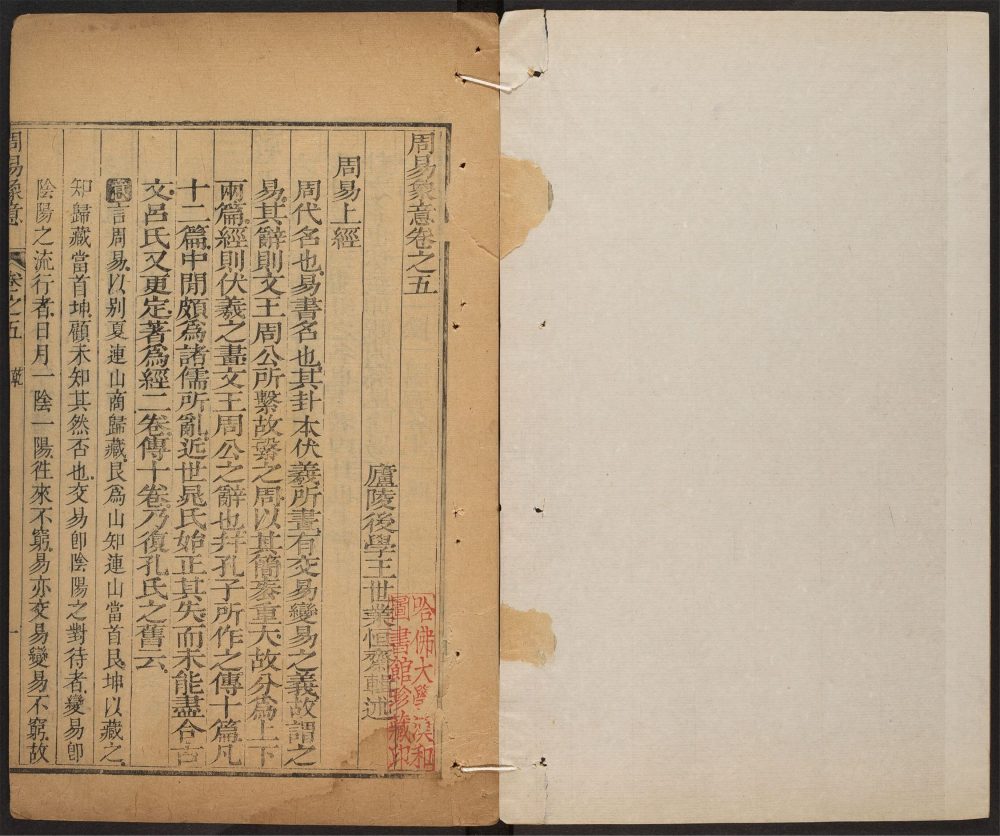 周易象意卷之五
廬陵後學王世業恒齋輯述
周易上經
周代名也易書名也其卦本伏羲所畫有交易變易之義故謂之
易其辭則文王周公所繫故繫之周以其簡袠重大故分爲上下
兩篇經則伏羲之畫文王周公之辭也幷孔子所作之傳十篇凡
十二篇中閒頗爲諸儒所亂近世晁氏始正其失而未能盡合古
文呂氏又更定著爲經二卷傳十卷乃復孔氏之舊云
言周易以别夏連山商歸藏艮爲山知連山當首艮坤以藏之
知歸藏當首坤顧未知其然否也交易卽陰陽之對待者變易卽
陰陽之流行者日月一陰一陽徃來不窮易亦交易變易不窮故
周易象意
卷之五
一
哈佛大學漢和
圖書館珍藏印